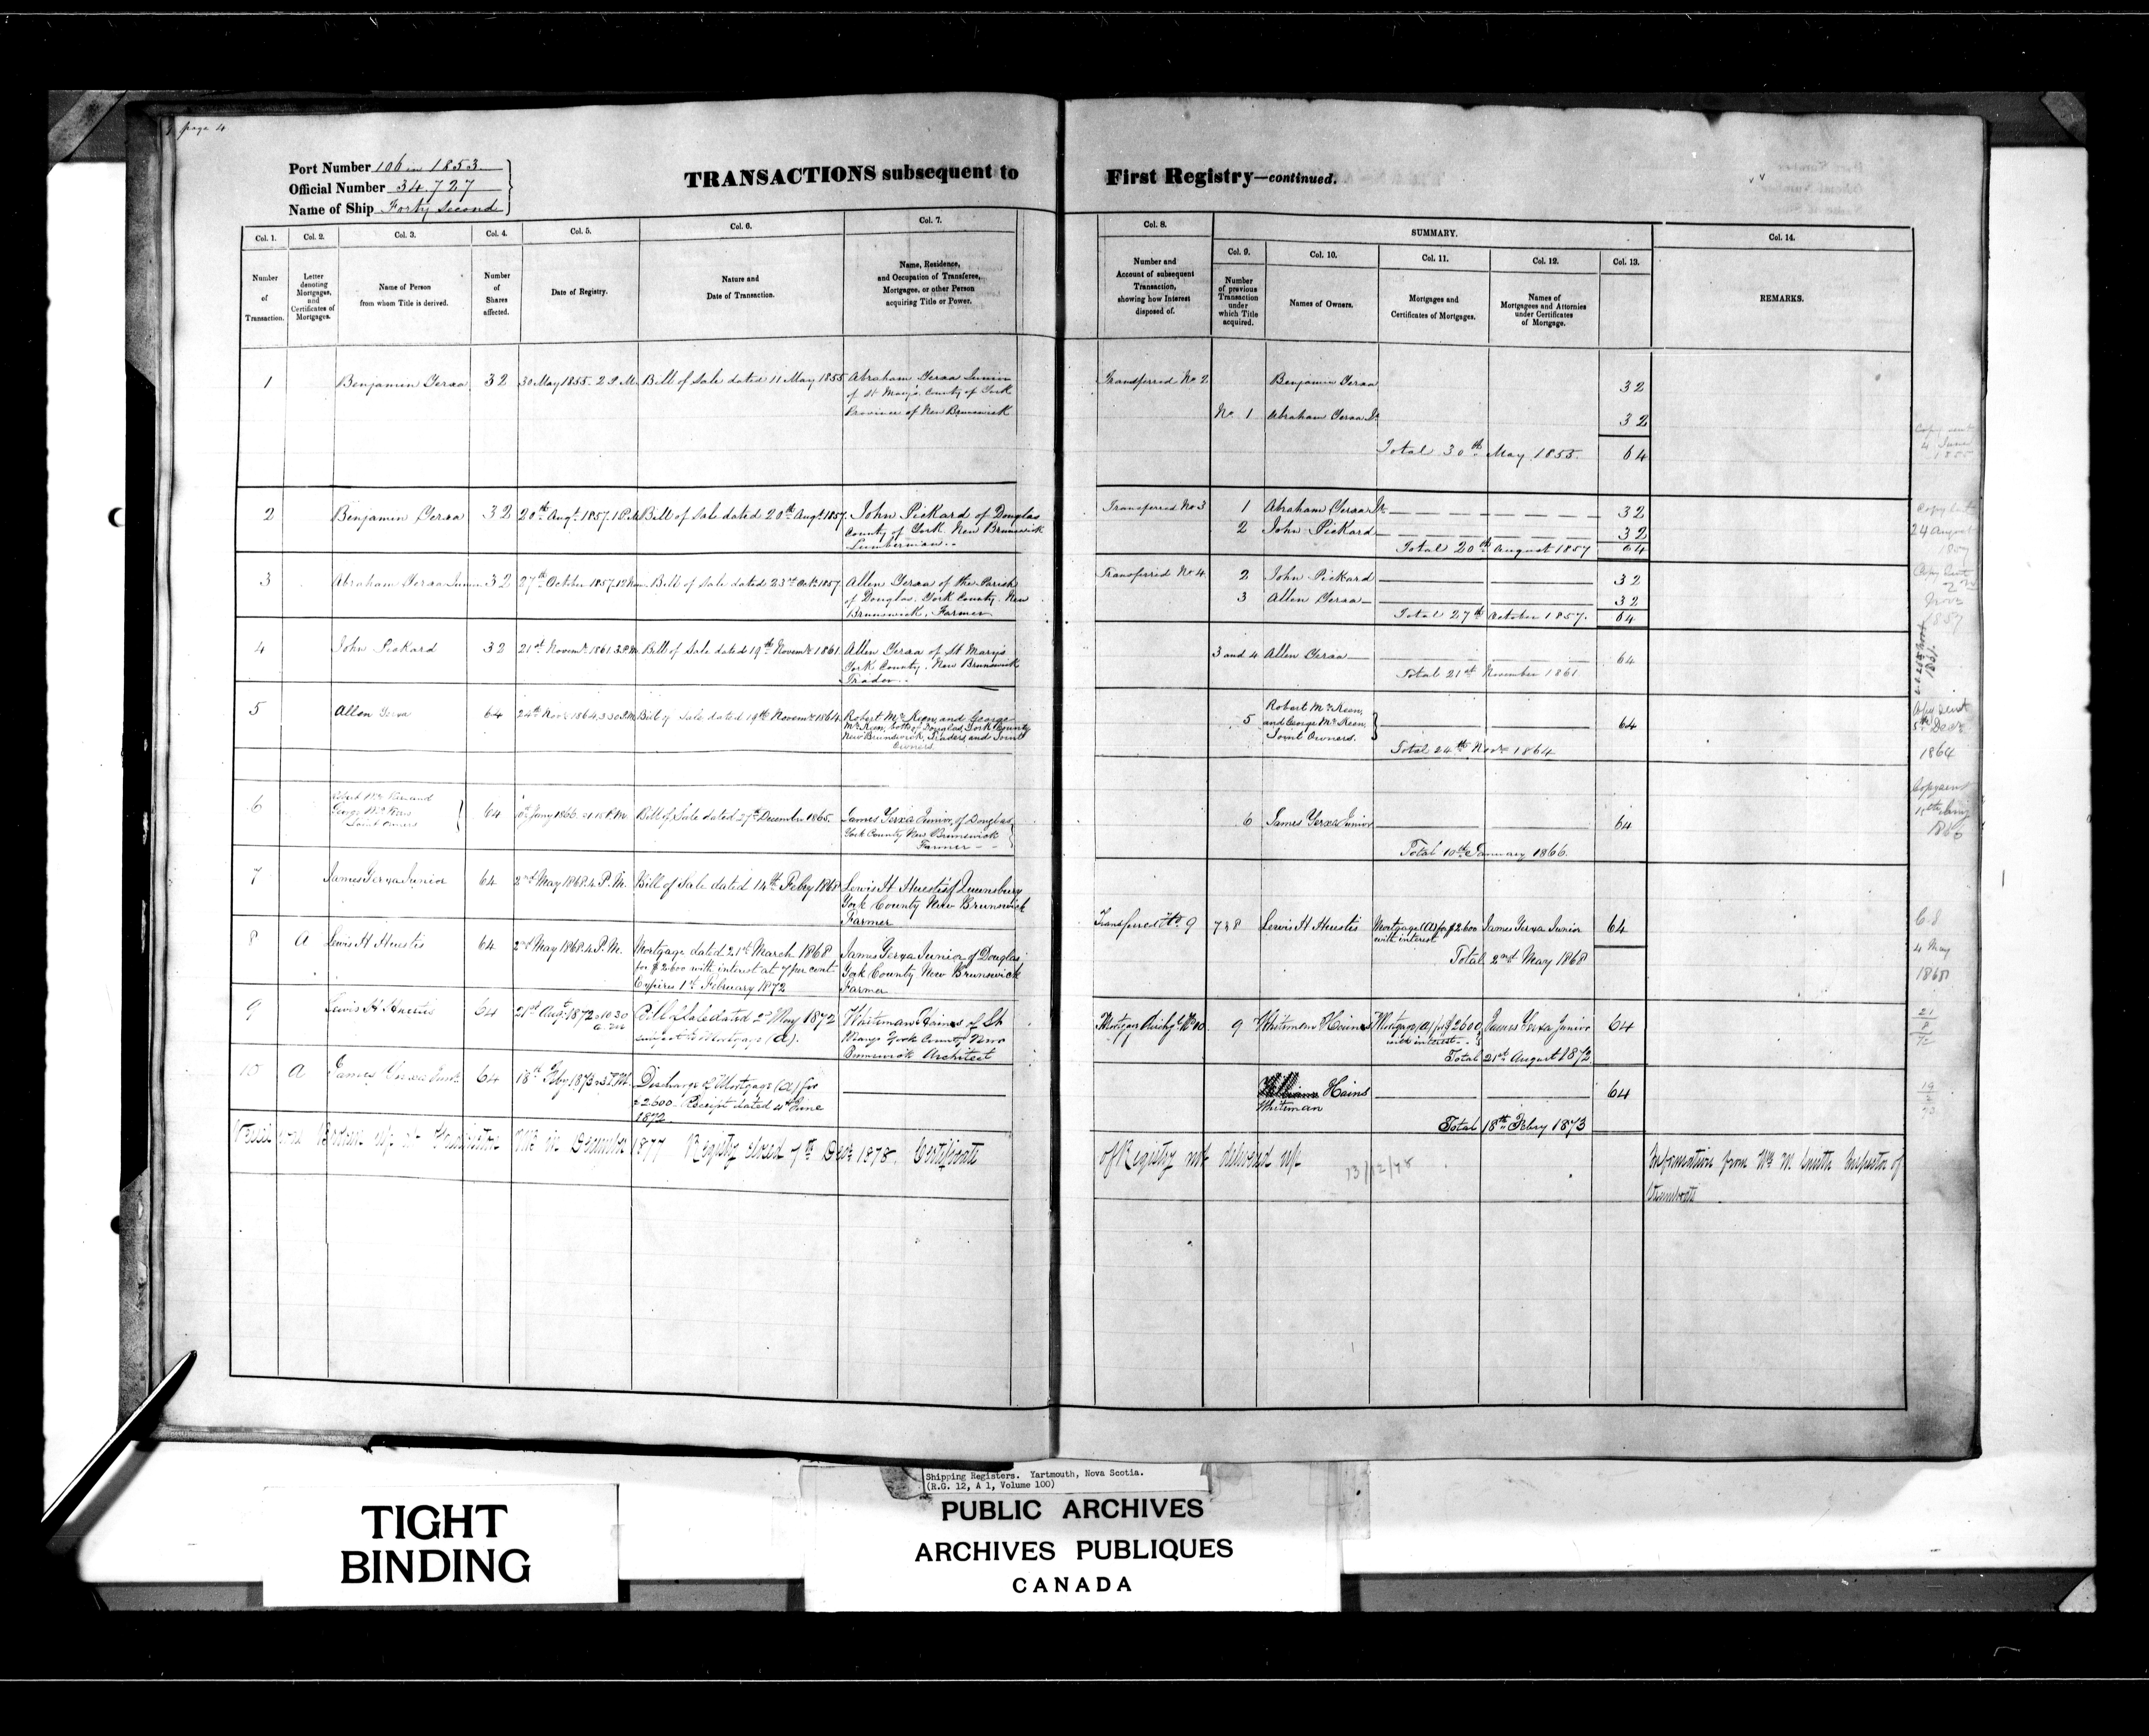 page 4
Port Number 106 in 1853
Official Number 34.727
Name of Ship Forty Second
TRANSACTIONS subsequent to First Registry—continued.
Col. 1. Col. 2. Col. 3. Col. 4. Col. 5. Col. 6. Col. 7. Col. 8. SUMMARY. Col. 14.
Col. 9. Col. 10. Col. 11. Col. 12. Col. 13.
Number of Transaction.
Letter denoting Mortgages, and Certificates of Mortgages.
Name of Person from whom Title is derived.
Number of Shares affected.
Date of Registry.
Nature and Date of Transaction.
Name, Residence, and Occupation of Transferee, Mortgagee, or other Person acquiring Title or Power.
Number and Account of subsequent Transaction, showing how Interest disposed of.
Number of previous Transaction under which Title acquired.
Names of Owners.
Mortgages and Certificates of Mortgages.
Names of Mortgagees and Attornies under Certificates of Mortgage.
REMARKS.
1 Benjamin Yerxa 32 30 May 1855. 2 P.M. Bill of Sale dated 11 May 1855 Abraham Yerxa Junior
of St Mary's County of York
Province of New Brunswick
Transferred No 2 Benjamin Yerxa 32
No 1 Abraham Yerxa Jr 32
Total 30th May 1855. 64
Copy sent
4 June
1855
2 Benjamin Yerxa 32 20th Augt. 1857. 1 P.M. Bill of Sale dated 20th Augt. 1857 John Pickard of Douglas
County of York New Brunswick
Lumberman
Transferred No 3 1 Abraham Yerxa Jr 32
2 John Pickard 32
Total 20th August 1857 64
Copy sent
24 August
1857
3 Abraham Yerxa Junior 32 27th October 1857. 12 Noon Bill of Sale dated 23rd Octr. 1857 Allen Yerxa of the Parish
of Douglas, York County. New
Brunswick, Farmer
Transferred No 4. 2 John Pickard 32
3 Allen Yerxa 32
Total 27th October 1857. 64
Copy sent
2nd
Novr
1857
4 John Pickard 32 21st Novemr. 1861 3 P.M. Bill of Sale dated 19th Novemr 1861 Allen Yerxa of St Mary's
York County, New Brunswick
Trader
3 and 4 Allen Yerxa 64
Total 21st November 1861
5 Allen Yerxa 64 24th Novr 1864, 3.30 P.M. Bill of Sale dated 19th Novemr 1864 Robert McKeen, and George
McKeen, both of Douglas, York County
New Brunswick, Traders, and Joint
Owners.
5 Robert McKeen,
and George McKeen,
Joint Owners. 64
Total 24th Novr 1864
Copy sent
5th Decr
1864
6 George McKeen
Joint Owners 64 Bill of Sale dated 27th December 1865. James Yerxa Junior, of Douglas
York County New Brunswick
Farmer
6 James Yerxa Junior 64
Total 10th January 1866.
Copy sent
1866
7 James Yerxa Junior 64 2nd May 1868. 4 P.M. Bill of Sale dated 14th Febry 1868 Lewis H. Huestis of Queensbury
York County New Brunswick
Farmer
8 A Lewis H Huestis 64 2nd May 1868. 4 P.M. Mortgage dated 21st March 1868
for $2600 with interest at 7 per cent
Expires 1st February 1872
James Yerxa Junior of Douglas
York County New Brunswick
Farmer
Transferred No. 9 7 & 8 Lewis H Huestis Mortgage (A) for $2600 James Yerxa Junior 64
with interest
Total 2nd May 1868
4 May
9 Lewis H Huestis 64 21st Augt 1872 10.30
a.m.
Bill of Sale dated 2d May 1872
subject to Mortgage (A).
Whiteman Hains of St
Marys York County New
Brunswick Architect
Mortgage disch'd No 10. 9 Whiteman Hains Mortgage (A) for $2600 James Yerxa Junior 64
with interest
Total 21st August 1872.
10 A James Yerxa Junr. 64 18th Feby 1873 3 P.M. Discharge of Mortgage (A) for
$2600. Receipt dated 4th June
1872.
Hains 64
Whiteman
Total 18th Febry 1873
Vessel was Broken up at Fredericton NB in December 1877 Registry closed 7th Decr 1878. Certificate of Registry not delivered up.
13/12/78
Information from Wm M Smith Inspector of
Steamboats
TIGHT
BINDING
Shipping Registers. Yartmouth, Nova Scotia.
(R.G. 12, A 1, Volume 100)
PUBLIC ARCHIVES
ARCHIVES PUBLIQUES
CANADA